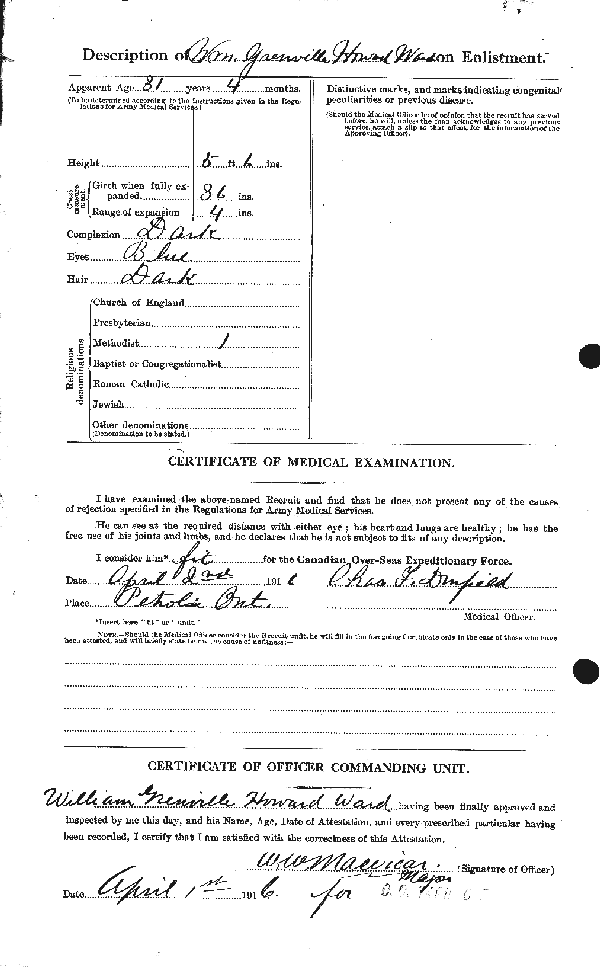 Description of Wm. Grenville Howard Ward on Enlistment.
Apparent Age 31 years 4 months.
(To be determined according to the instructions given in the Regulations for Army Medical Services)
Distinctive marks, and marks indicating congenital
peculiarities or previous disease.
(Should the Medical Officer be of opinion that the recruit has served
before, he will, unless the man acknowledges to any previous
service, attach a slip to that effect, for the information of the
Approving Officer).
Height 5 ft 6 ins.
Chest measurement
Girth when fully expanded 36 ins.
Range of expansion 4 ins.
Complexion Dark
Eyes Blue
Hair Dark
Religious denominations
Church of England
Presbyterian
Methodist 1
Baptist or Congregationalist
Roman Catholic
Jewish
Other denominations
(Denomination to be stated.)
CERTIFICATE OF MEDICAL EXAMINATION.
I have examined the above-named Recruit and find that he does not present any of the causes
of rejection specified in the Regulations for Army Medical Services.
He can see at the required distance with either eye ; his heart and lungs are healthy ; he has the
free use of his joints and limbs, and he declares that he is not subject to fits of any description.
I consider him* fit for the Canadian Over-Seas Expeditionary Force.
Date April 2nd 1916 Chas
Place Petrolia Ont.
Medical Officer.
*Insert here "fit" or "unfit."
NOTE.—Should the Medical Officer consider the Recruit unfit, he will fill in the foregoing Certificate only in the case of those who have
been attested, and will briefly state below the cause of unfitness:—
CERTIFICATE OF OFFICER COMMANDING UNIT.
William Grenville Howard Ward having been finally approved and
inspected by me this day, and his Name, Age, Date of Attestation, and every prescribed particular having
been recorded, I certify that I am satisfied with the correctness of this Attestation.
W W Macvicar (Signature of Officer)
Major
Date April 1st 1916 for